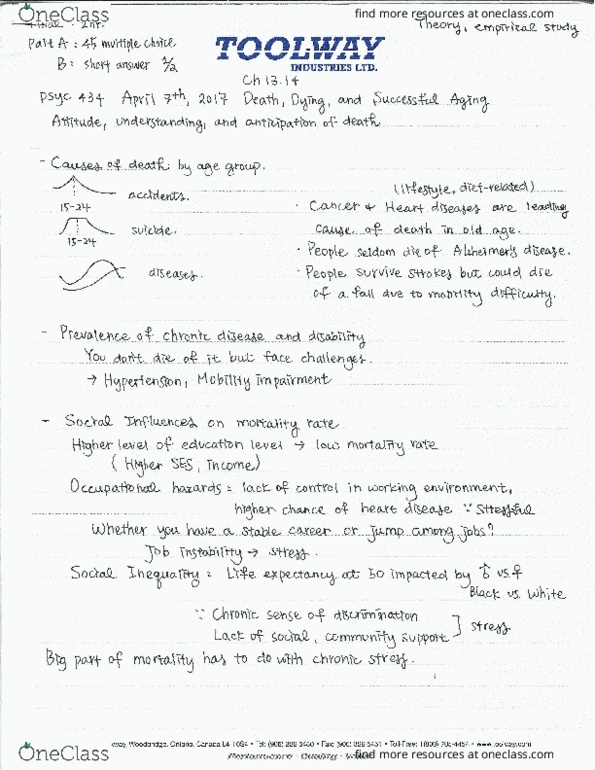 OneClass
find more resources at oneclass.com
Final - 2hr.
Theory, empirical study
Part A : 45 multiple choice
B : short answer 1/2
TOOLWAY
INDUSTRIES LTD.
Ch 13.14
psyc 434 April 7th, 2017 Death, Dying, and Successful Aging
Attitude, understanding, and anticipation of death
- Causes of death by age group.
accidents.
15-24
suicide.
15-24
diseases.
(lifestyle, diet-related)
· Cancer & Heart diseases are leading
cause of death in old age.
· People seldom die of Alzheimer's disease.
· People survive strokes but could die
of a fall due to mobility difficulty.
- Prevalence of chronic disease and disability
You don't die of it but face challenges.
→ Hypertension, Mobility impairment
- Social Influences on mortality rate
Higher level of education level → low mortality rate
(Higher SES, income)
Occupational hazards = lack of control in working environment,
higher chance of heart disease ∵ stressful
Whether you have a stable career or jump among jobs?
Job instability → stress.
Social Inequality = Life expectancy at 50 impacted by ♂ vs. ♀
Black vs. White
∵ Chronic sense of discrimination
Lack of social, community support ] stress
Big part of mortality has to do with chronic stress.
Woodbridge, Ontario, Canada • Tel: • Fax: • Toll-Free: • www.toolway.com
OneClass
find more resources at oneclass.com